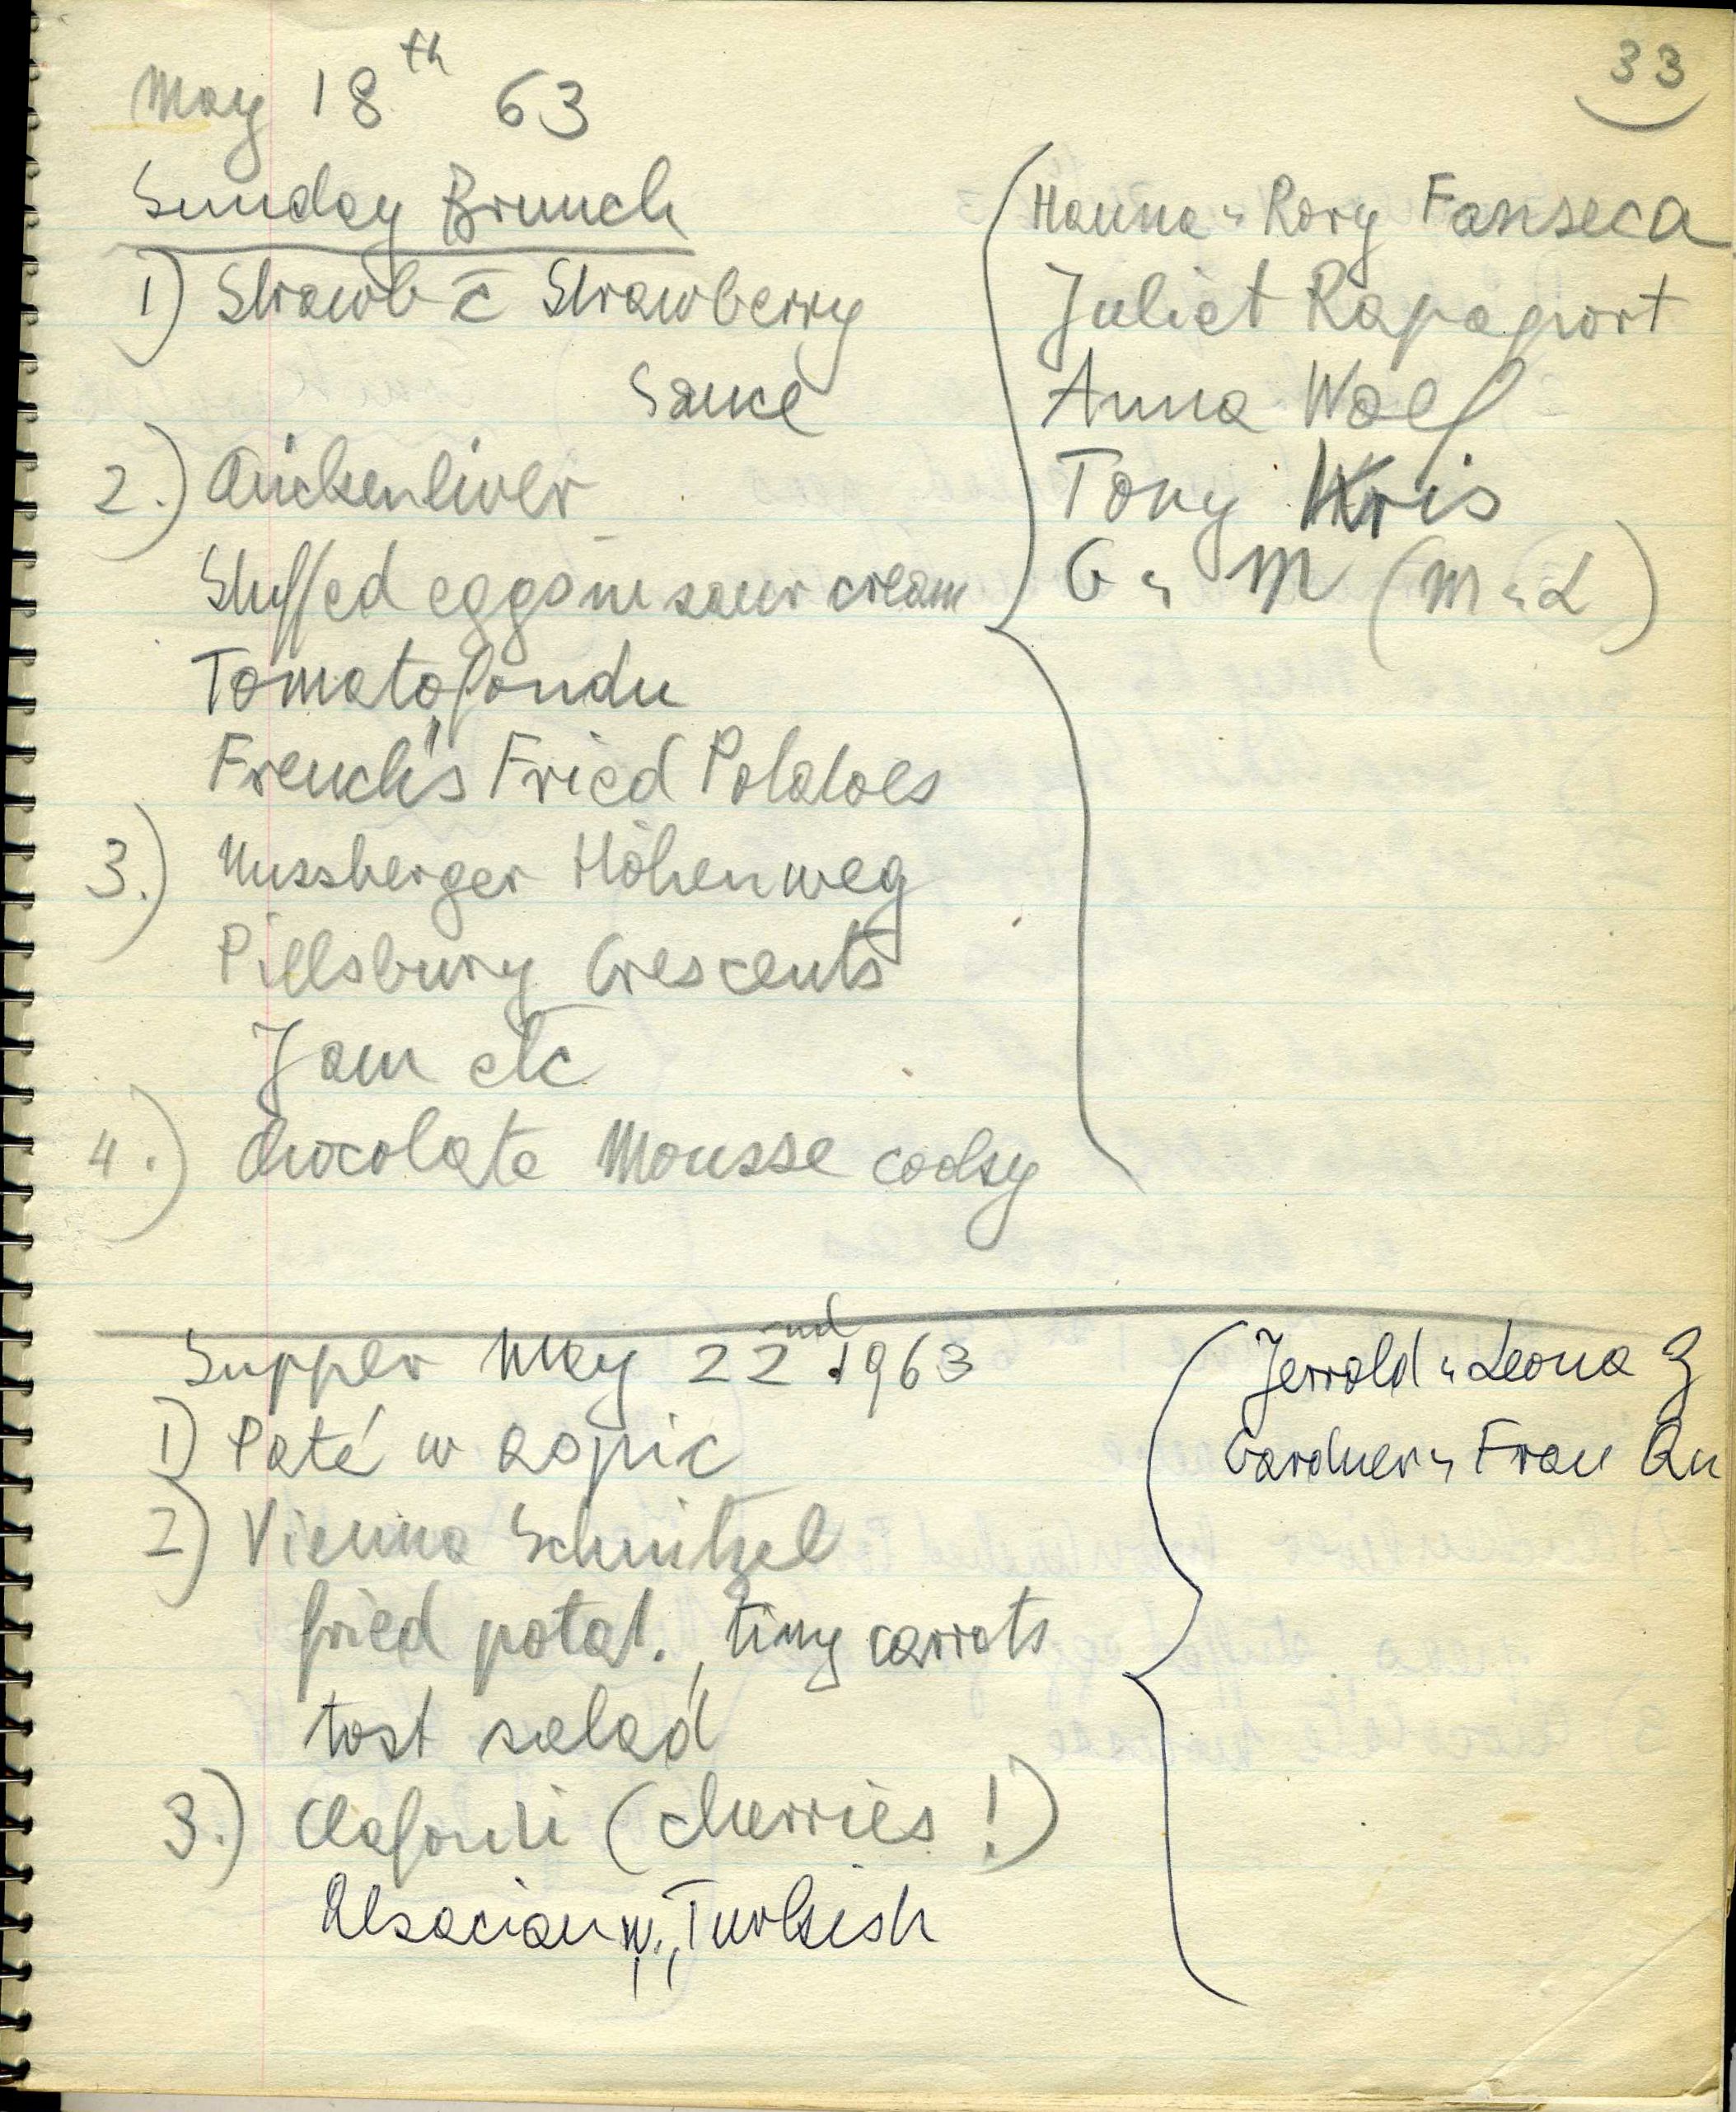 33
May 18th 63
Sunday Brunch
1) Strawb c̄ Strawberry
Sauce
2.) Chickenliver
Stuffed eggs in sour cream
Tomatofondu
French's Fried Potatoes
3.) Nussberger Höhenweg
Pillsbury Crescents
Jam etc
4.) Chocolate Mousse
Hanna u Rory Fanseca
Juliet Rapaport
Anna Wolf
Tony Kris
G u M (M u L)
Supper May 22nd 1963
1) Paté w aspic
2) Vienna Schnitzel
fried potat., tiny carrots
tost salad
3.) Clafouti (cherries!)
Alsacian w., Turkish
Jerrold u Leona
Gardner u Frau Qu